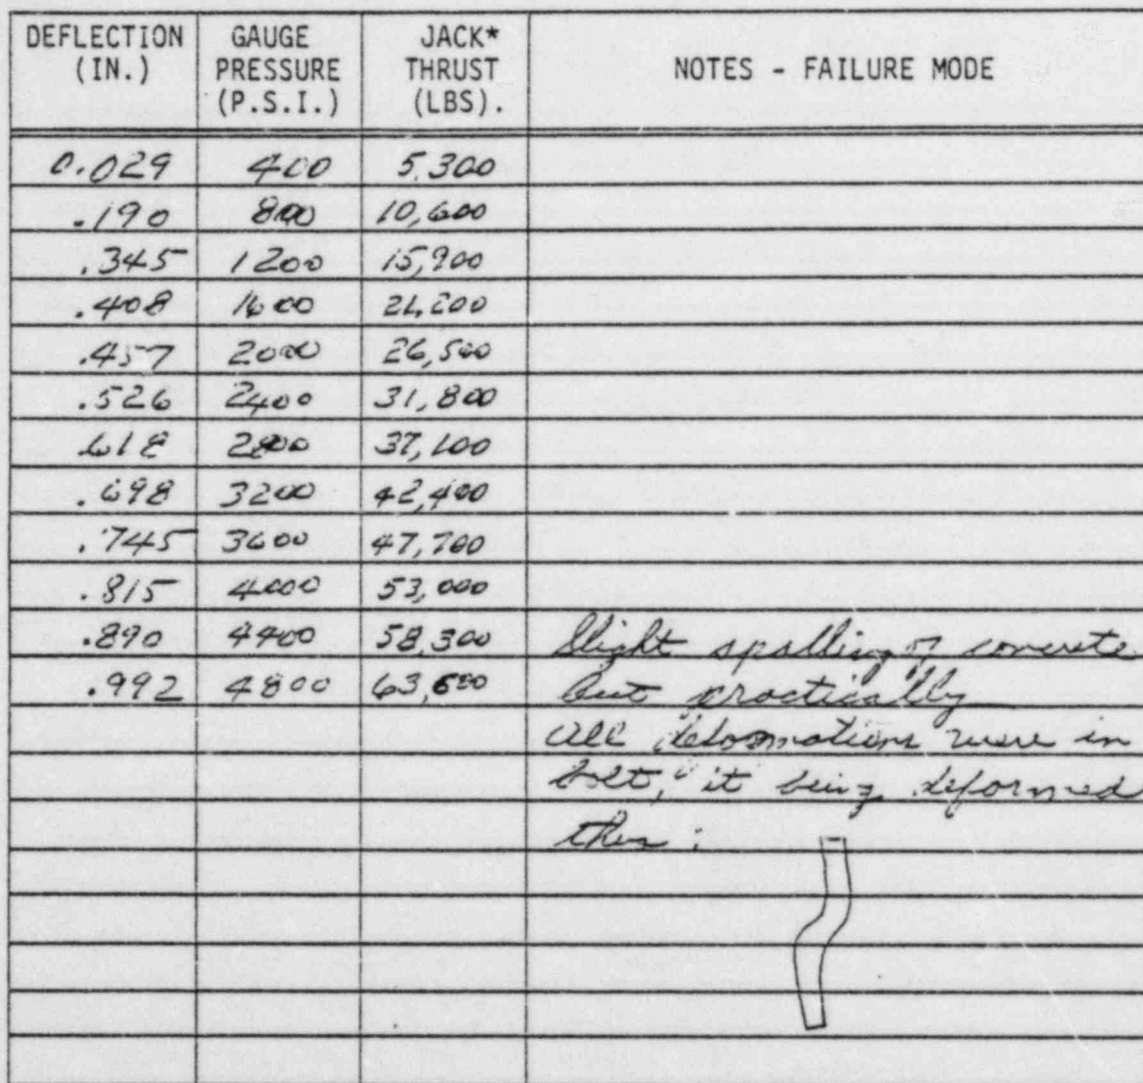 DEFLECTION (IN.) GAUGE PRESSURE (P.S.I.) JACK* THRUST (LBS). NOTES - FAILURE MODE
0.029 400 5,300
.190 800 10,600
.345 1200 15,900
.408 1600 21,200
.457 2000 26,500
.526 2400 31,800
.618 2800 37,100
.698 3200 42,400
.745 3600 47,700
.815 4000 53,000
.890 4400 58,300 Slight spalling of concrete
.992 4800 63,600 but practically
all deformations were in
bolt, it being deformed
thus: